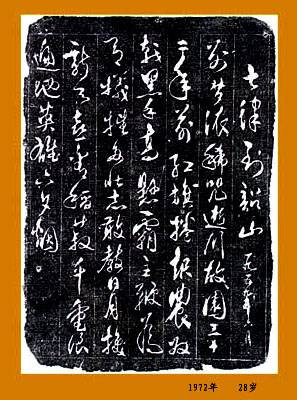 七律 到韶山 一九五九年六月
别梦依稀咒逝川故園三十
二年前紅旗捲起農奴
戟黑手高懸霸主鞭為
有犧牲多壯志敢教日月換
新天喜看稻菽千重浪
遍地英雄下夕烟。
1972年 28岁